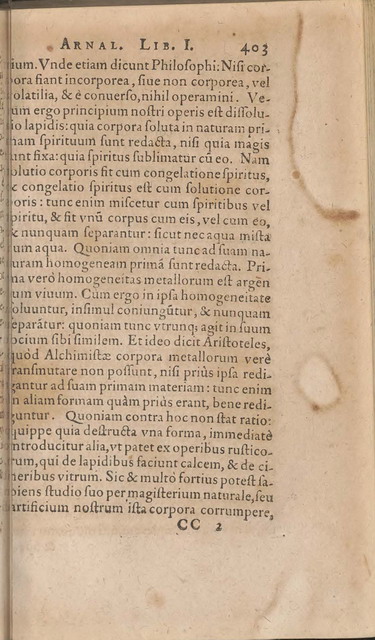 ARNAL. LIB. I. 403
ium. Vnde etiam dicunt Philosophi: Nisi cor-
pora fiant incorporea, siue non corporea, vel
volatilia, & è conuerso, nihil operamini. Ve-
um ergo principium nostri operis est dissolu-
io lapidis: quia corpora soluta in naturam pri-
mam spirituum sunt redacta, nisi quia magis
unt fixa: quia spiritus sublimatur cũ eo. Nam
olutio corporis fit cum congelatione spiritus,
& congelatio spiritus est cum solutione cor-
poris: tunc enim miscetur cum spiritibus vel
piritu, & fit vnũ corpus cum eis, vel cum eo,
& nunquam separantur: sicut nec aqua mista
um aqua. Quoniam omnia tunc ad suam na-
uram homogeneam primã sunt redacta. Pri-
ma verò homogeneitas metallorum est argen
um viuum. Cùm ergo in ipsa homogeneitate
oluuntur, insimul coniungũtur, & nunquam
eparãtur: quoniam tunc vtrunq; agit in suum
ocium sibi similem. Et ideo dicit Aristoteles,
quòd Alchimistæ corpora metallorum verè
ransmutare non possunt, nisi priùs ipsa redi-
gantur ad suam primam materiam: tunc enim
n aliam formam quàm priùs erant, bene redi-
guntur. Quoniam contra hoc non stat ratio:
quippe quia destructa vna forma, immediatè
ntroducitur alia, vt patet ex operibus rustico-
rum, qui de lapidibus faciunt calcem, & de ci-
neribus vitrum. Sic & multò fortiùs potest sa-
piens studio suo per magisterium naturale, seu
artificium nostrum ista corpora corrumpere,
CC 2